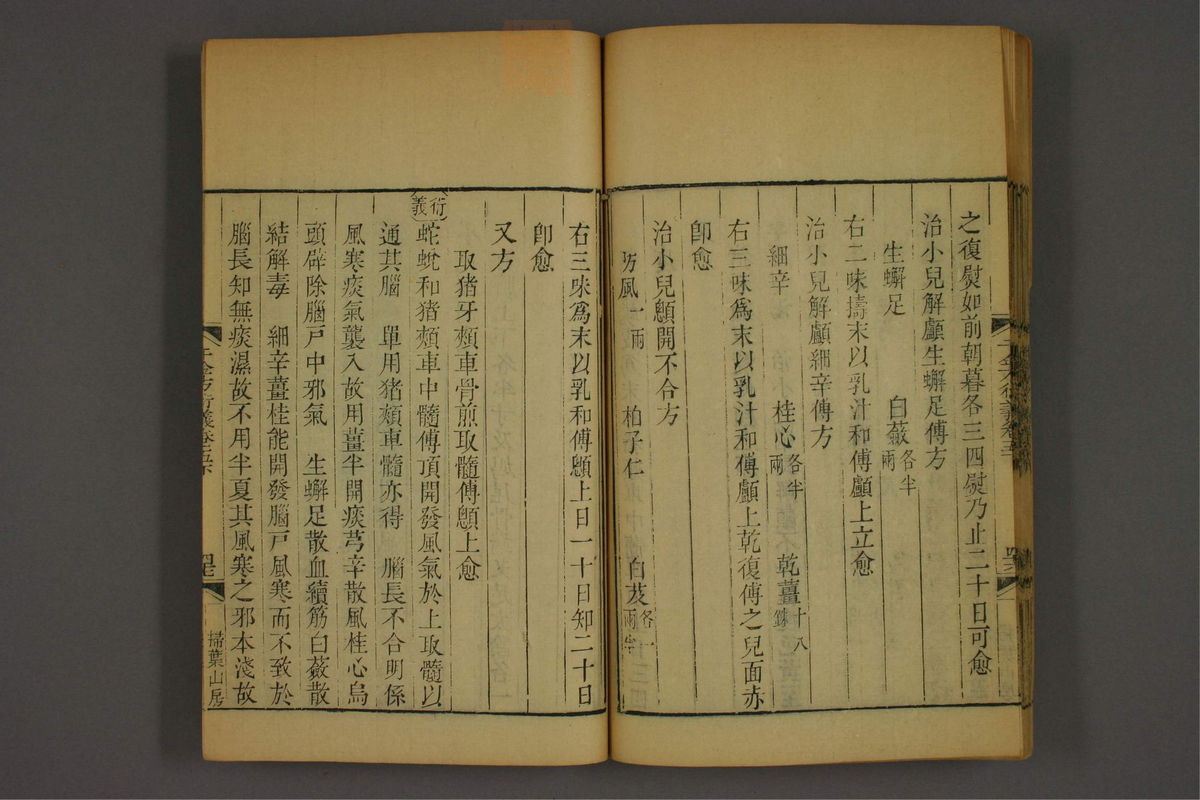 之復熨如前朝暮各三四熨乃止二十日可愈
治小兒解顱生蠏足傅方
生蠏足 白蘞各半兩
右二味擣末以乳汁和傅顱上立愈
治小兒解顱細辛傅方
細辛 桂心各半兩 乾薑十八銖
右三味爲末以乳汁和傅顱上乾復傅之兒面赤
卽愈
治小兒顖開不合方
防風一兩 柏子仁 白芨各一兩半
右三味爲末以乳和傅顖上日一十日知二十日
卽愈
又方
取猪牙頰車骨煎取髓傅顖上愈
衍義 蛇蛻和猪頰車中髓傅頂開發風氣於上取髓以
通其腦 單用猪頰車髓亦得 腦長不合明係
風寒痰氣襲入故用薑半開痰芎辛散風桂心烏
頭辟除腦戸中邪氣 生蠏足散血續筋白蘞散
結解毒 細辛薑桂能開發腦戸風寒而不致於
腦長知無痰濕故不用半夏其風寒之邪本淺故
千金方衍義卷五下
掃葉山房